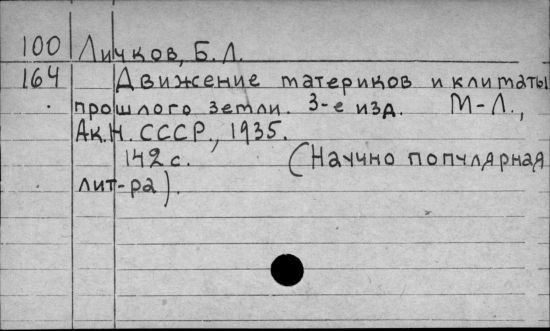 100 Личков, Б.Л.
164 Движение материков и климаты
прошлого Земли. 3-е изд. М-Л.,
Ак.Н. СССР, 1935.
142 с. (Научно популярная
лит-ра).